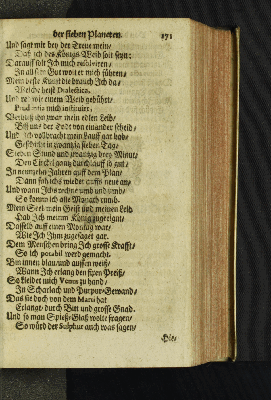 der sieben Planeten. 171
Und sagt mir bey der Treue mein/
Daß ich des Königs Weib solt seyn:
Darauff solt Ich mich resolviren/
In all sein Gut wolt er mich führen/
Mein beste Kunst die brauch Ich da/
Welche heist Dialectica.
Und wie einem Weib gebührt/
mich
ihn zwar mein edlen Leib/
Biß uns der Todt von einander scheid/
Und ich vollbracht mein Lauff gar hoh/
Geschicht in zwantzig sieben Tag/
Sieben Stund und zwantzig drey Minut/
Den Circkel gantz durchlauff ich gut/
In neunzehn Jahren auff dem Plan/
Dann fah ichs wieder auffs neue an/
Und wann Ichs rechne umb und umb/
So komm ich alle Monath rumb.
Mein Seel/ mein Geist und meinen Leib
Hab Ich meinem König zugeeignt/
Dasselb auff einen Montag war/
Wie Ich Ihm zugesaget gar.
Dem Menschen bring Ich grosse Krafft/
So ich potabil werd gemacht.
Bin innen blau/und aussen weiß/
Wann Ich erlang den fixen Preiß/
So kleidet mich Venus zu hand/
In Scharlach und Purpur-Gewand/
Das sie doch von dem Mars hat
Erlangt/ durch Bitt und grosse Gnad.
Und so man Spieß-Glaß wolte fragen/
So würd der Sulphur auch was sagen/